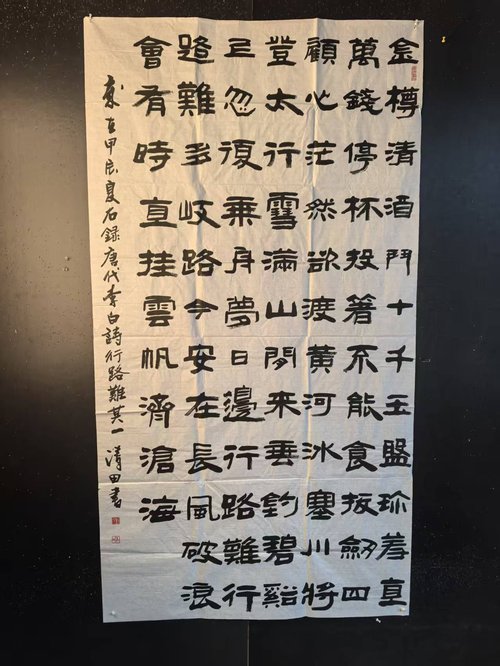 金樽清酒鬥十千玉盤珎羞直
萬錢停杯投箸不能食拔劒四
顧心茫然欲渡黃河冰塞川將
登太行雪滿山閒來垂釣碧谿
上忽復乘舟夢日邊行路難行
路難多岐路今安在長風破浪
會有時直挂雲帆濟滄海
歲在甲辰夏右錄唐代李白詩行路難其一清田書